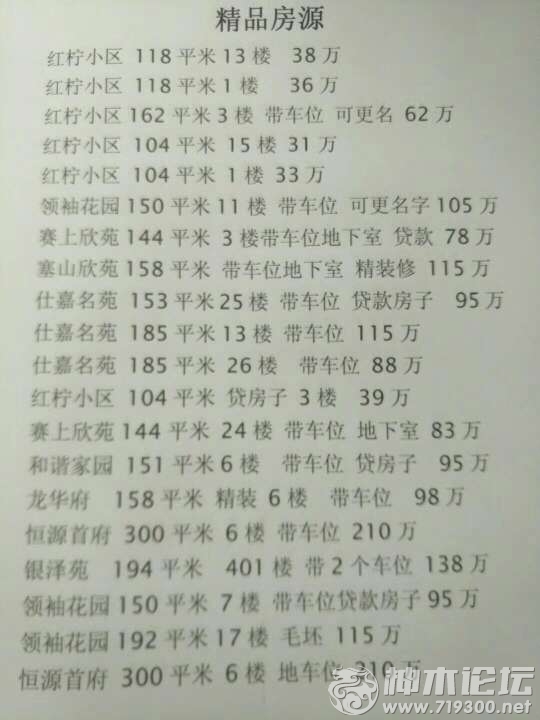 精品房源
红柠小区 118 平米 13 楼 38 万
红柠小区 118 平米 1 楼 36 万
红柠小区 162 平米 3 楼 带车位 可更名 62 万
红柠小区 104 平米 15 楼 31 万
红柠小区 104 平米 1 楼 33 万
领袖花园 150 平米 11 楼 带车位 可更名字 105 万
赛上欣苑 144 平米 3 楼带车位地下室 贷款 78 万
塞山欣苑 158 平米 带车位地下室 精装修 115 万
仕嘉名苑 153 平米 25 楼 带车位 贷款房子 95 万
仕嘉名苑 185 平米 13 楼 带车位 115 万
仕嘉名苑 185 平米 26 楼 带车位 88 万
红柠小区 104 平米 贷房子 3 楼 39 万
赛上欣苑 144 平米 24 楼 带车位 地下室 83 万
和谐家园 151 平米 6 楼 带车位 贷房子 95 万
龙华府 158 平米 精装 6 楼 带车位 98 万
恒源首府 300 平米 6 楼 带车位 210 万
银泽苑 194 平米 401 楼 带 2 个车位 138 万
领袖花园 150 平米 7 楼 带车位贷款房子 95 万
领袖花园 192 平米 17 楼 毛坯 115 万
恒源首府 300 平米 6 楼 地车位 310 万
神木论坛
www.719300.net